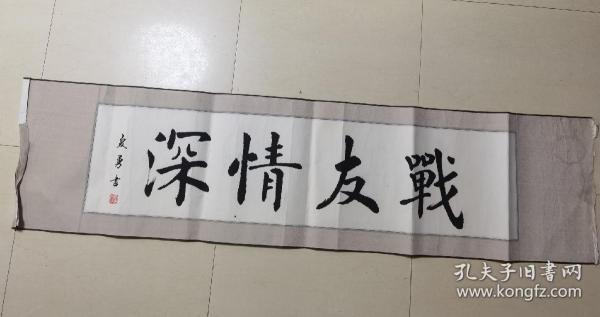 戰友情深
友勇书
孔夫子旧書网
www.kongfz.com